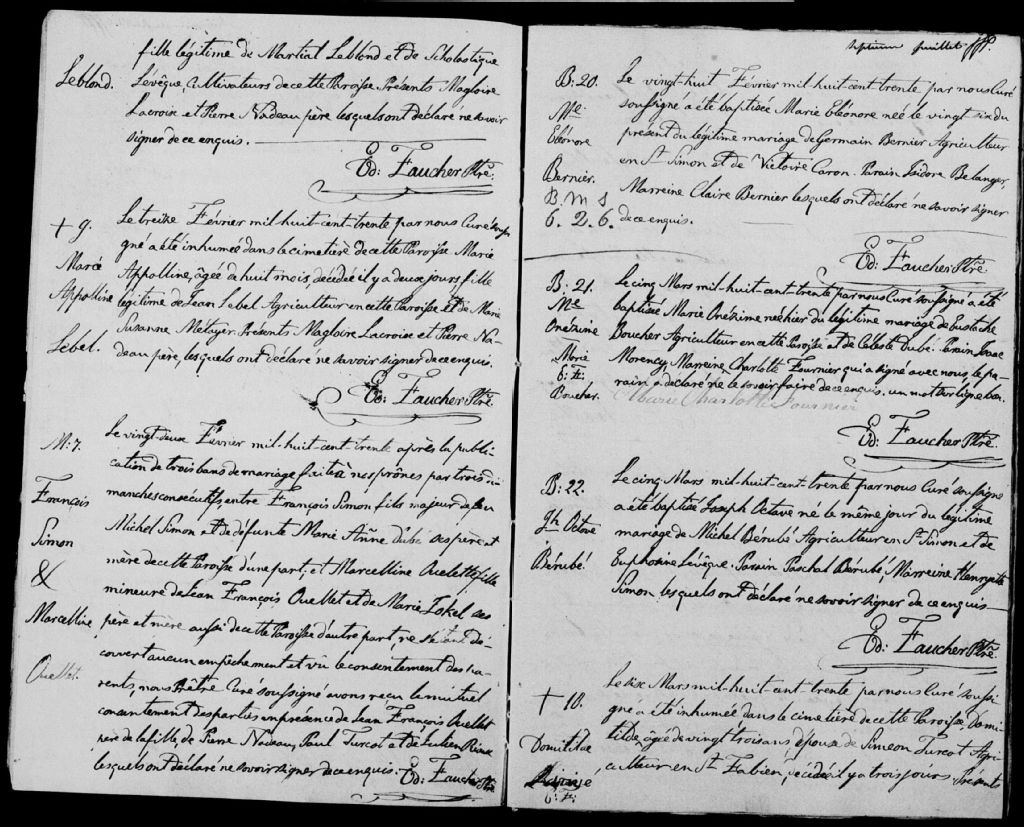 fille légitime de Martial Leblond et de Scholastique
Leblond. Levêque Cultivateurs de cette Paroisse. Présents Magloire
Lacroix et Pierre Nadeau père lesquels ont déclaré ne savoir
signer de ce enquis.
Ed: Faucher Ptre.
+ 9. Le treize Février mil-huit-cent-trente par nous Curé soussi
gné a été inhumée dans le cimetière de cette Paroisse Marie
Marie Appolline, âgée de huit mois, décédée il y a deux jours, fille
Appolline légitime de Jean Lebel Agriculteur en cette Paroisse et de Marie
Lebel. Suzanne Metayer. Présents Magloire Lacroix et Pierre Na-
deau père, lesquels ont déclaré ne savoir signer de ce enquis.
Ed: Faucher Ptre.
M: 7. Le vingt-deux Février mil-huit-cent-trente après la publi-
cation de trois bans de mariage faite à nos prônes par trois di
François manches consécutifs, entre François Simon fils majeur de feu
Simon Michel Simon et de défunte Marie Anne Dubé ses père et
& mère de cette Paroisse d'une part, et Marcelline Ouelette fille
mineure de Jean François Ouellet et de Marie ses
Marcelline père et mère aussi de cette Paroisse d'autre part, ne s'étant dé-
couvert aucun empêchement et vû le consentement des pa-
Ouellet. rents, nous Prêtre Curé soussigné avons reçu le mutuel
consentement des parties en présence de Jean François Ouellet
père de la fille, de Pierre Nadeau, Paul Turcot et de Julien Rioux
lesquels ont déclaré ne savoir signer de ce enquis. Ed: Faucher Ptre
septieme feuillet
B: 20. Le vingt-huit Février mil-huit-cent-trente par nous Curé
Me: soussigné a été baptisée Marie Eléonore née le vingt six du
Eléonore présent du légitime mariage de Germain Bernier Agriculteur
Bernier. en St. Simon et de Victoire Caron. Parain Isidore Belanger,
B. M S Marreine Claire Bernier lesquels ont déclaré ne savoir signer
6. 2. 6. de ce enquis.
Ed: Faucher Ptre
B: 21. Le cinq Mars mil-huit-cent-trente par nous Curé soussigné a été
Me baptisée Marie Onézime née hier du légitime mariage de Eustache
Onézime Boucher Agriculteur en cette Paroisse et de Celeste Dubé. Parain Isaac
Morency, Marreine Charlotte Fournier qui a signé avec nous, le pa-
Boucher. rain a déclaré ne le savoir faire de ce enquis. un mot sur ligne bon.
Marie Charlotte Fournier
Ed: Faucher Ptre.
B: 22. Le cinq Mars mil-huit-cent-trente par nous Curé soussigné
Jh Octave a été baptisé Joseph Octave né le même jour du légitime
Bérubé. mariage de Michel Bérubé Agriculteur en St Simon et de
Euphrosine Lévêque. Parain Paschal Bérubé, Marreine Henryette
Simon lesquels ont déclaré ne savoir signer de ce enquis
Ed: Faucher Ptre.
+ 10. Le six Mars mil-huit-cent-trente par nous Curé soussi
gné a été inhumée dans le cimetière de cette Paroisse, Domi
Domitilde tilde, âgée de vingt trois ans, épouse de Simeon Turcot Agri-
culteur en St. Fabien, décédée il y a trois jours. Présents